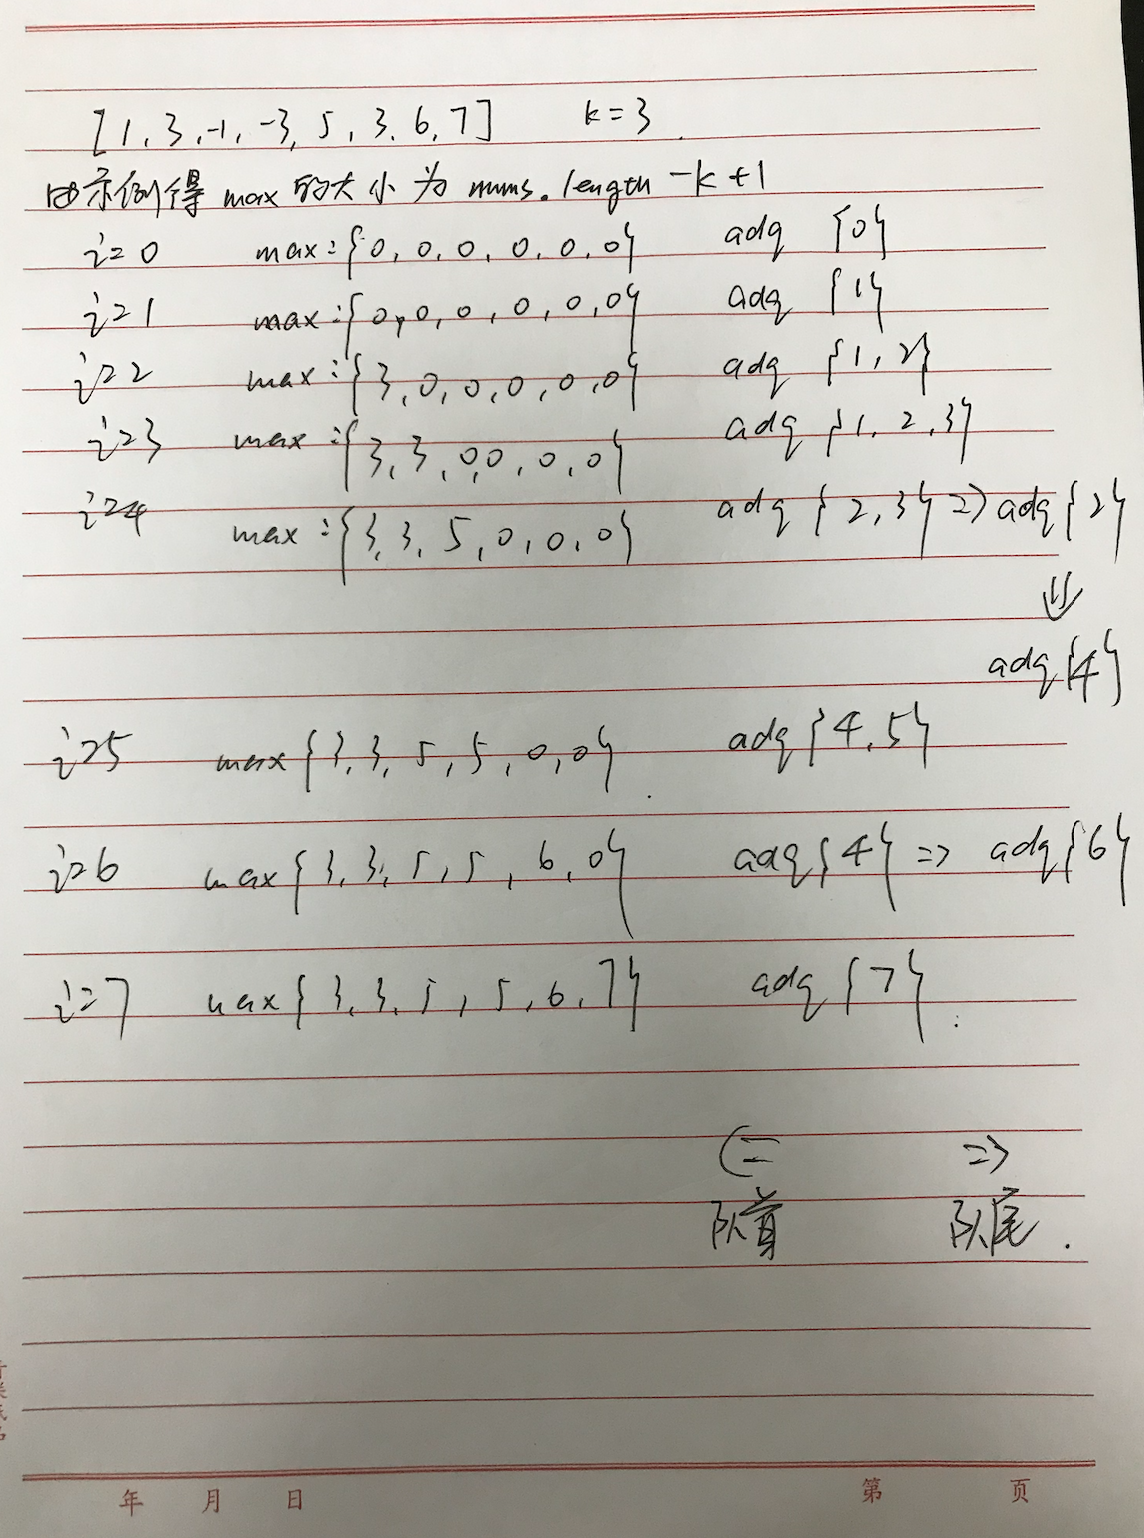 [1, 3, -1, -3, 5, 3, 6, 7] k=3
由示例得 max 的大小为 nums.length -k+1
i=0 max:{0, 0, 0, 0, 0, 0} adq {0}
i=1 max:{0, 0, 0, 0, 0, 0} adq {1}
i=2 max:{3, 0, 0, 0, 0, 0} adq {1, 2}
i=3 max:{3, 3, 0, 0, 0, 0} adq {1, 2, 3}
i=4 max:{3, 3, 5, 0, 0, 0} adq {2, 3} => adq {2}
adq {4}
i=5 max {3, 3, 5, 5, 0, 0} adq {4, 5}
i=6 max {3, 3, 5, 5, 6, 0} adq {4} => adq {6}
i=7 max {3, 3, 5, 5, 6, 7} adq {7}
<= =>
队首 队尾.
年 月 日 第 页